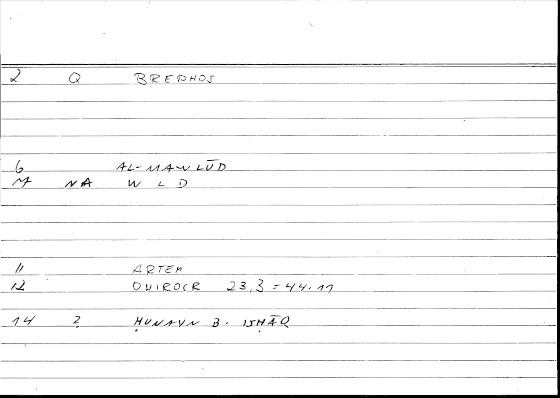 2 Q BREPHOS
6 AL-MAWLŪD
M NA W L D
11 ARTEM
12 ONIROCR 23,3 = 44.11
14 2 ḤUNAYN B. ISḤĀQ